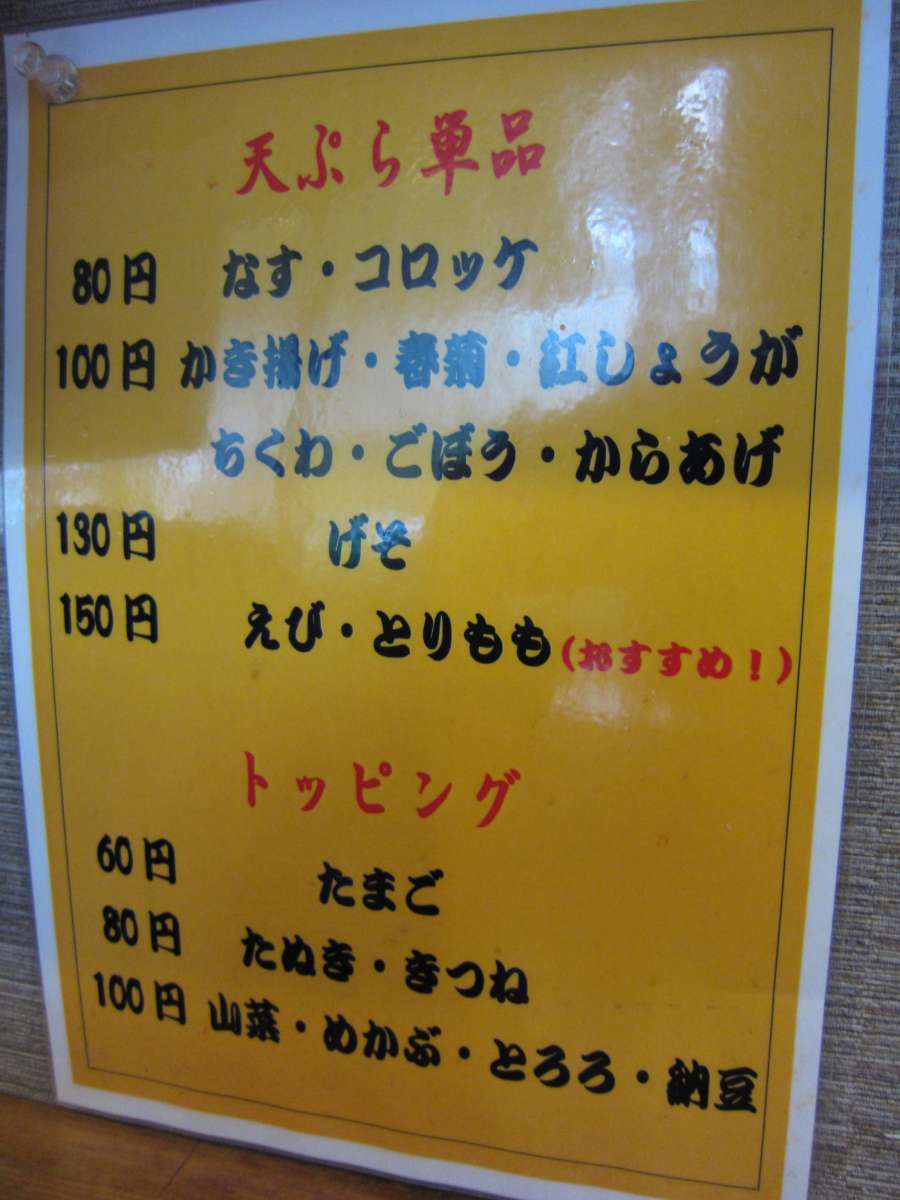 天ぷら単品
80円 なす・コロッケ
100円 かき揚げ・春菊・紅しょうが
ちくわ・ごぼう・からあげ
130円 げそ
150円 えび・とりもも(おすすめ!)
トッピング
60円 たまご
80円 たぬき・きつね
100円 山菜・めかぶ・とろろ・納豆